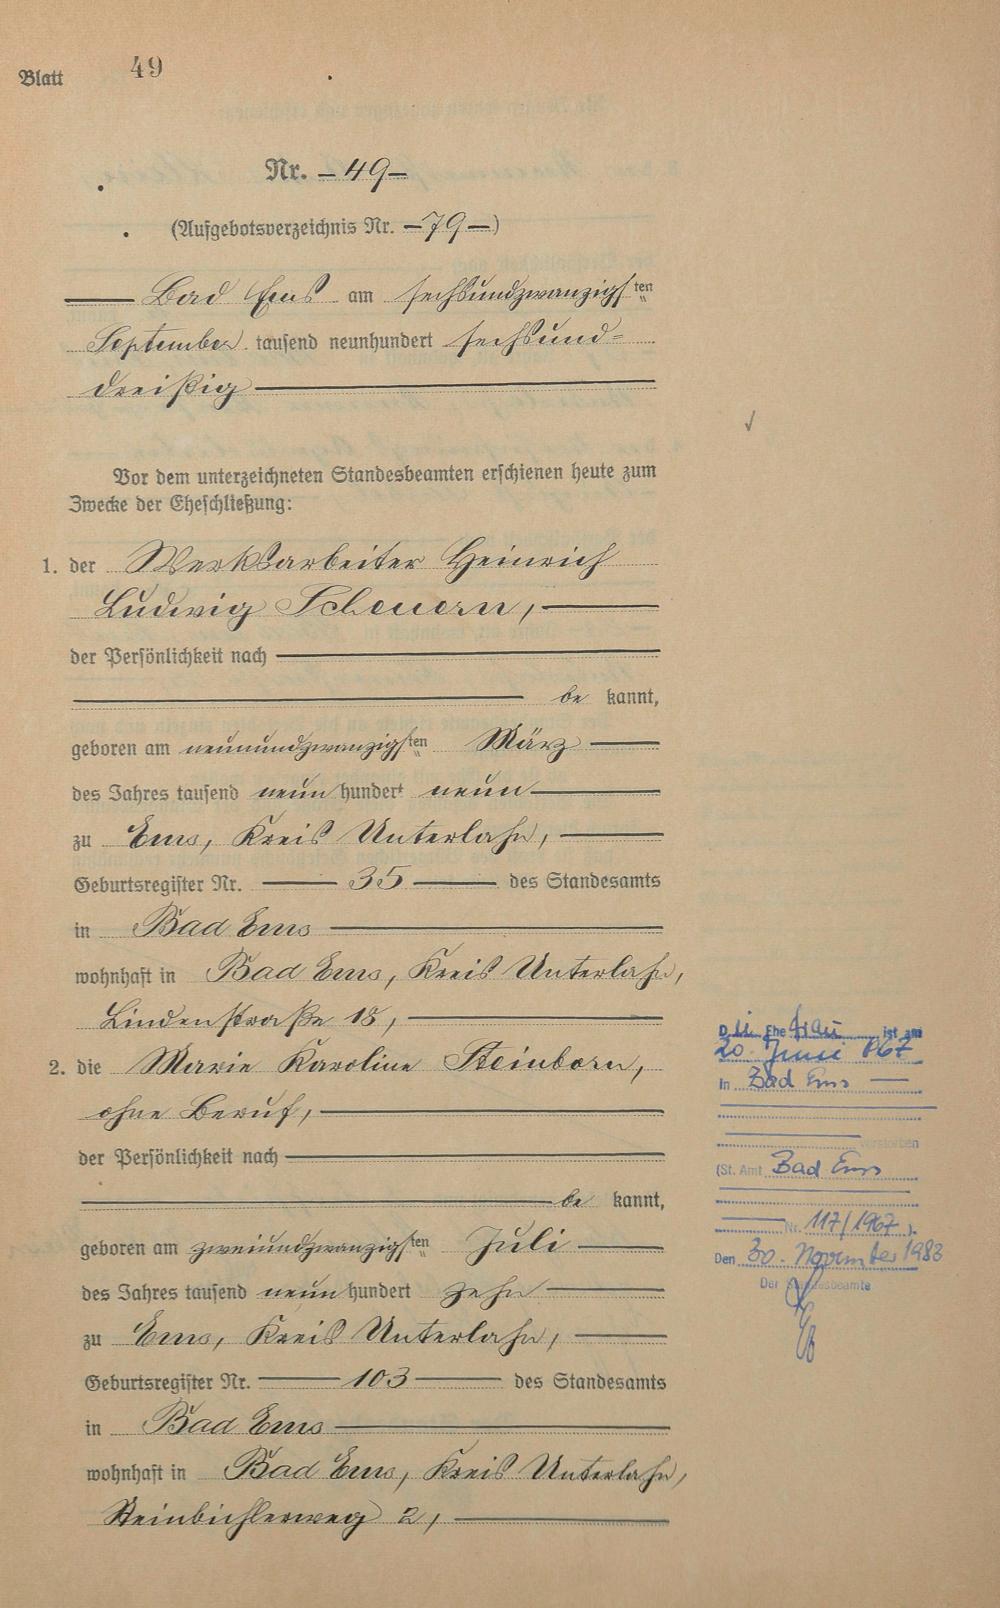 Blatt 49
Nr. – 49 –
(Aufgebotsverzeichnis Nr. – 79 –)
Bad Ems am sechsundzwanzigsten
September tausend neunhundert sechsund=
dreißig
Vor dem unterzeichneten Standesbeamten erschienen heute zum
Zwecke der Eheschließung:
1. der Werksarbeiter Heinrich
Ludwig Scheuern,
der Persönlichkeit nach
be kannt,
geboren am neunundzwanzigsten März
des Jahres tausend neun hundert neun
zu Ems, Kreis Unterlahn,
Geburtsregister Nr. 35 des Standesamts
in Bad Ems
wohnhaft in Bad Ems, Kreis Unterlahn,
Lindenstraße 18,
2. die Marie Karoline Steinborn,
ohne Beruf,
der Persönlichkeit nach
be kannt,
geboren am zweiundzwanzigsten Juli
des Jahres tausend neun hundert zehn
zu Ems, Kreis Unterlahn,
Geburtsregister Nr. 103 des Standesamts
in Bad Ems
wohnhaft in Bad Ems, Kreis Unterlahn,
Steinbichlerweg 2,
Die Ehefrau ist am
20. Juni 1967
In Bad Ems
verstorben
(St. Amt Bad Ems
Nr. 117/1967).
Den 30. November 1983
Der Standesbeamte